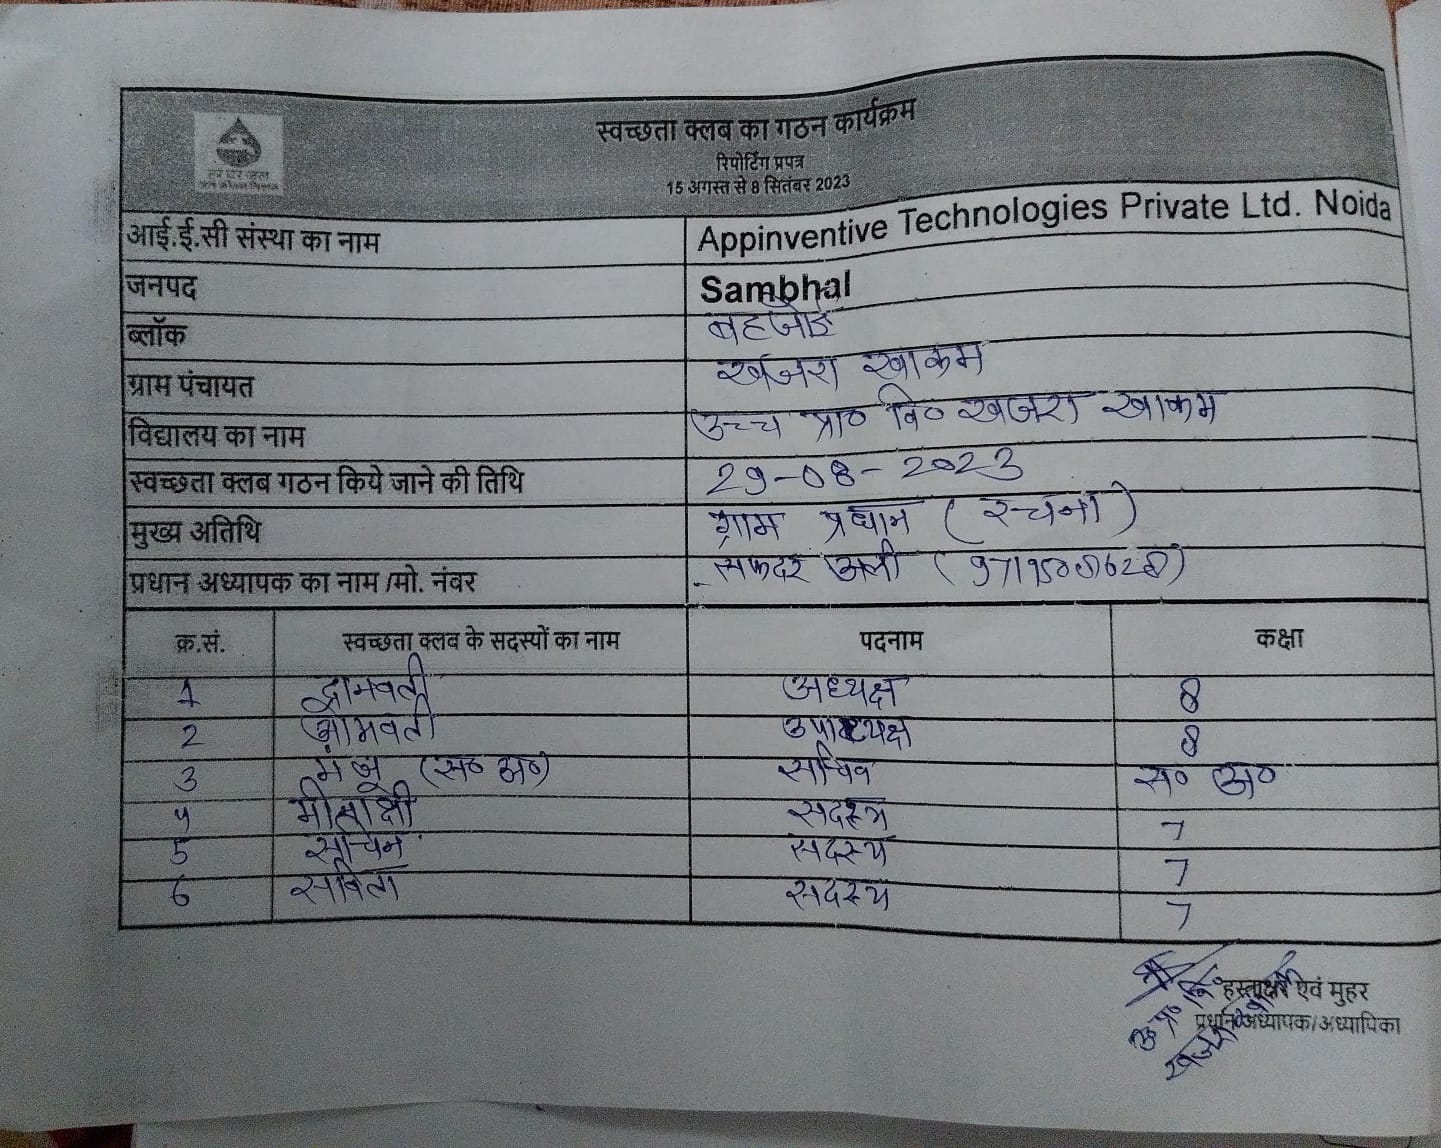 हर घर जल
स्वच्छता क्लब का गठन कार्यक्रम
रिपोर्टिंग प्रपत्र
15 अगस्त से 8 सितंबर 2023
आई.ई.सी संस्था का नाम Appinventive Technologies Private Ltd. Noida
जनपद Sambhal
ब्लॉक बहजोई
ग्राम पंचायत खजरा खाकम
विद्यालय का नाम उच्च प्रा० वि० खजरा खाकम
स्वच्छता क्लब गठन किये जाने की तिथि 29-08-2023
मुख्य अतिथि ग्राम प्रधान (रचना)
प्रधान अध्यापक का नाम /मो. नंबर सफदर अली
क्र.सं. स्वच्छता क्लब के सदस्यों का नाम पदनाम कक्षा
1 अध्यक्ष 8
2 उपाध्यक्ष 8
3 मंजू (स० अ०) सचिव स० अ०
4 मीनाक्षी सदस्य 7
5 सचिन सदस्य 7
6 सविता सदस्य 7
हस्ताक्षर एवं मुहर
प्रधान अध्यापक/अध्यापिका